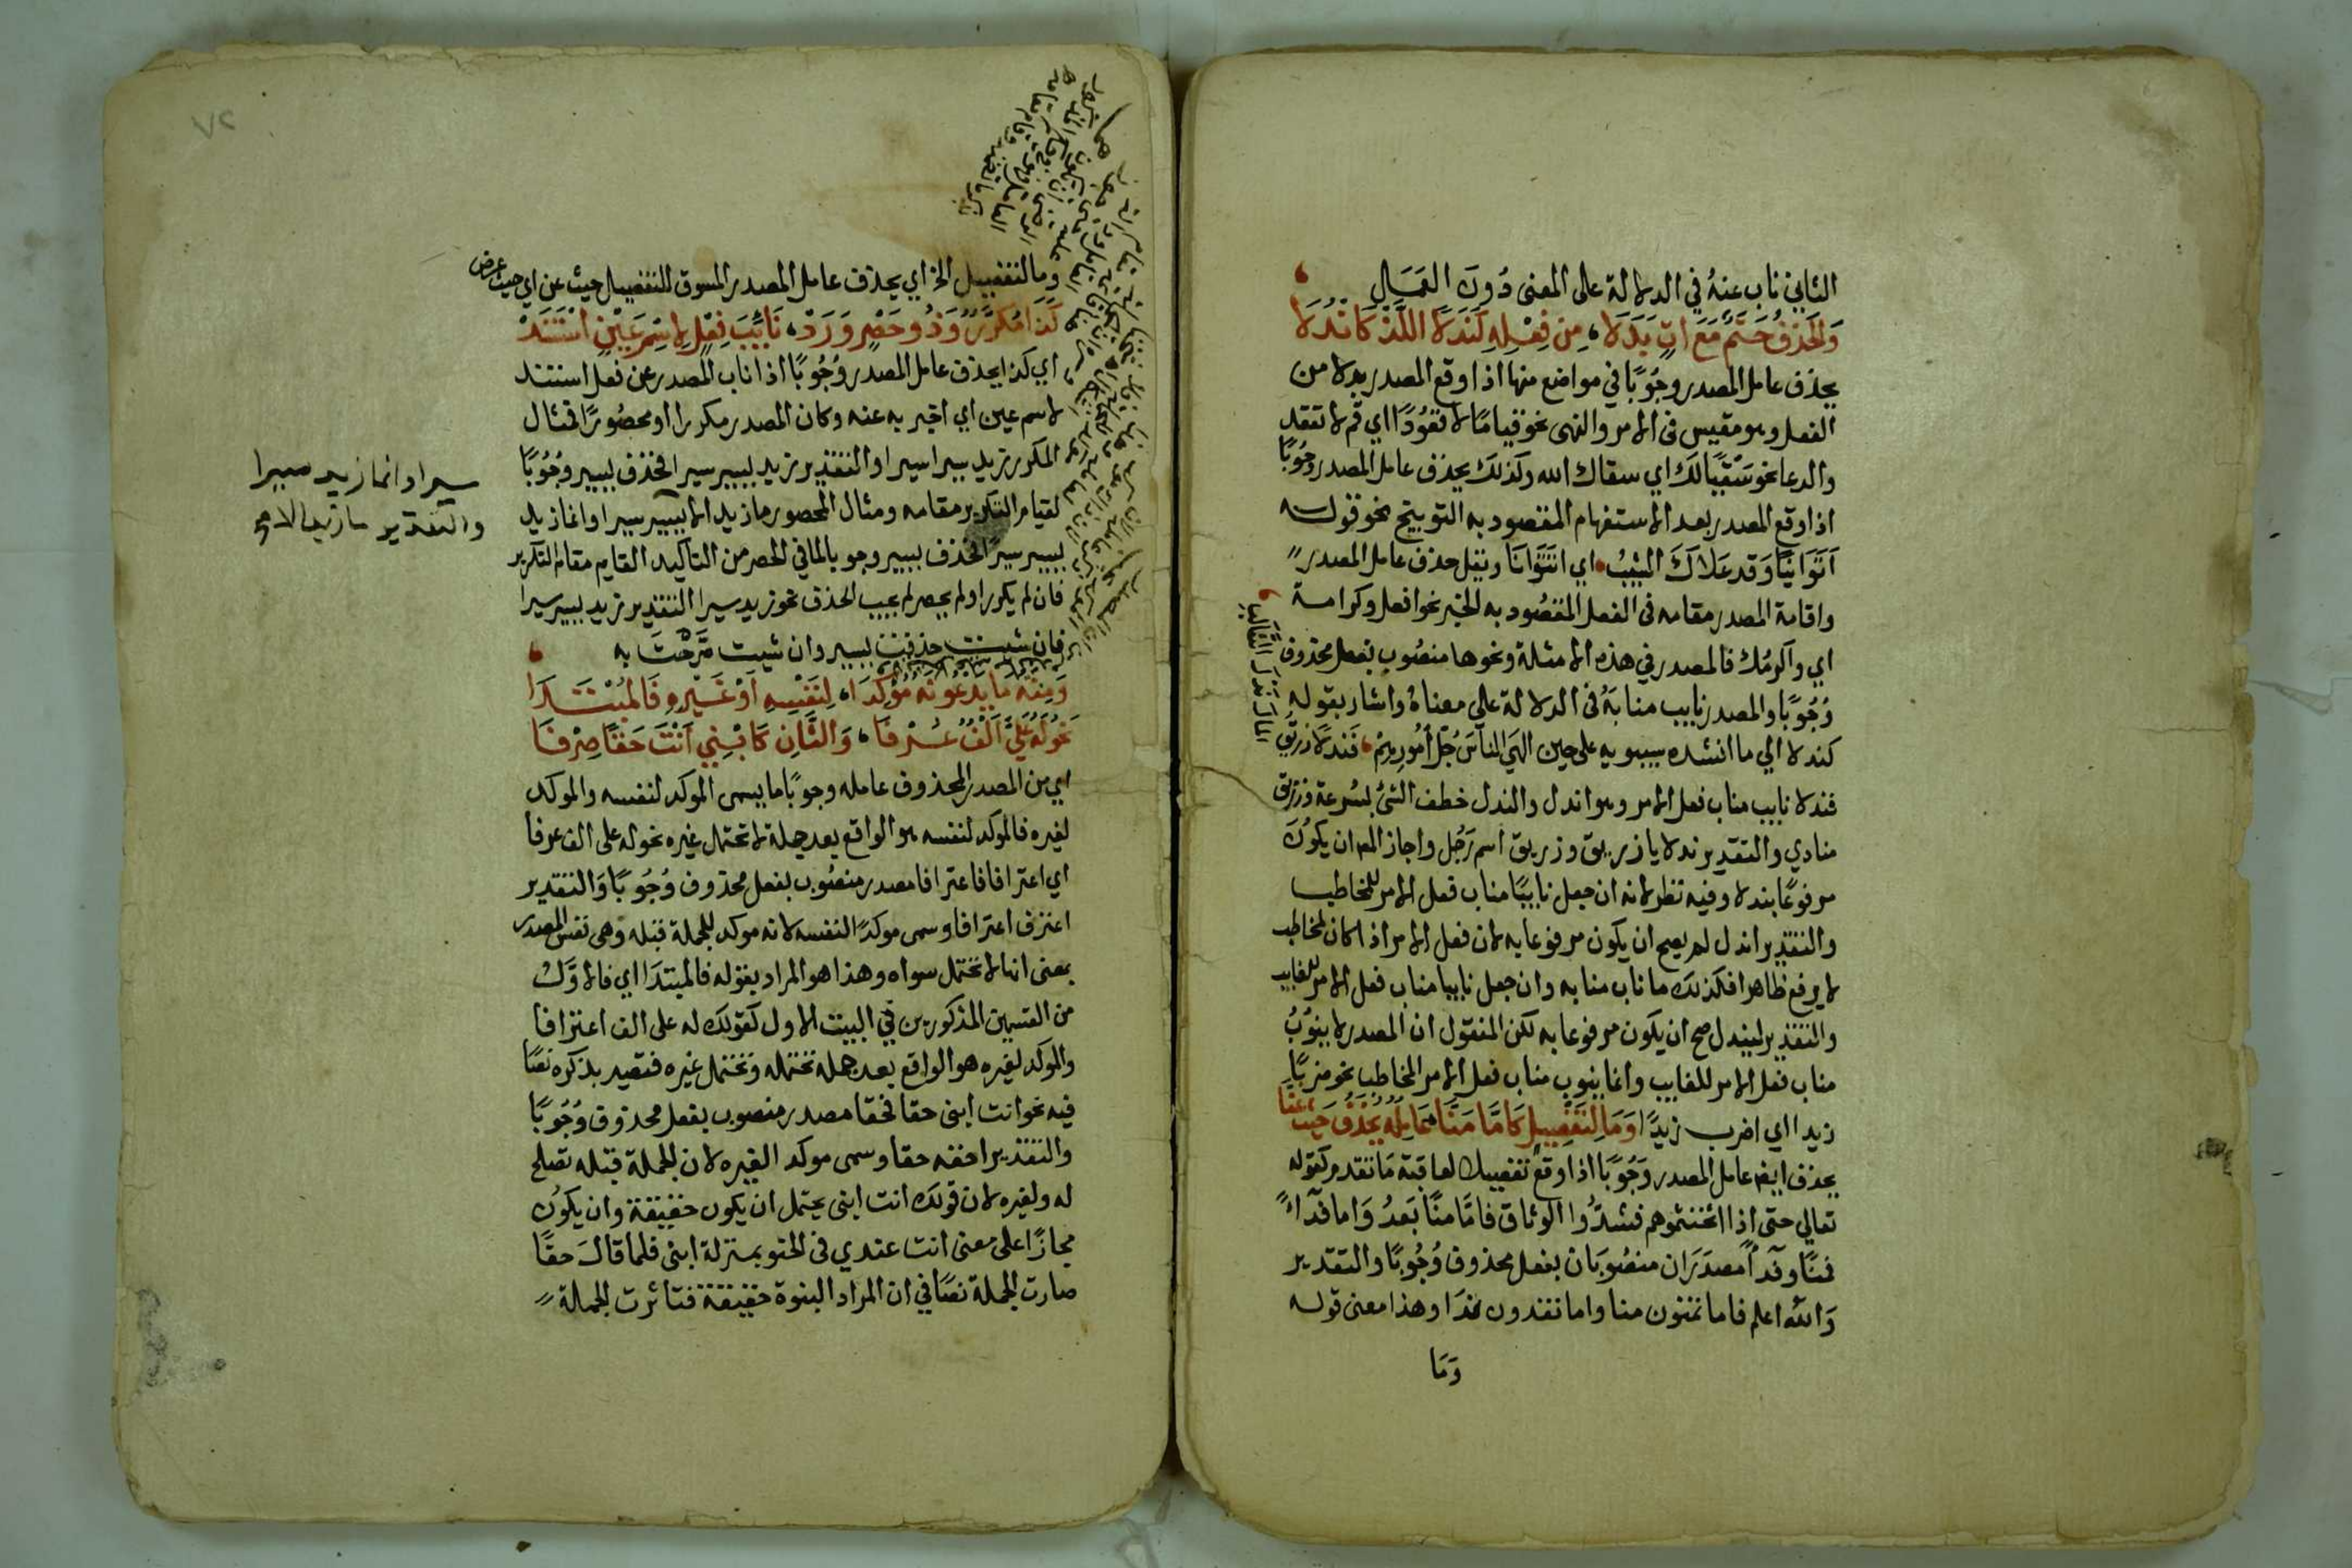 الثاني ناب عنه في الدلالة على المعنى دون العمل
والحذف حتم مع ات بدلا، من فعله كندلا اللذ كاندلا
يحذف عامل المصدر وجوبًا في مواضع منها اذا وقع المصدر بدلا من
الفعل وهو مقيس فى الامر والنهى نحو قياما لا قعودًا اي قم لا تقعد
والدعا نحو سقيا لك اي سقاك الله وكذلك يحذف عامل المصدر وجوبًا
اذا وقع المصدر بعد الاستفهام المقصود به التوبيخ نحو قولـه
اتوانيا وقد علاك المشيب اي اتتوانا ويقل حذف عامل المصدر
واقامة المصدر مقامه فى الفعل المقصود به الخبر نحو افعل وكرامة
اي واكرمك فالمصدر في هذه الامثلة ونحوها منصوب بفعل محذوف
وجوبًا والمصدر نايب منابه فى الدلالة علي معناه واشار بقوله
كندلا الي ما انشده سيبويه على حين الهي الناس جل امورهم، فندلا زريق
المال ندل الثعالب
فندلا نايب مناب فعل الامر وهو اندل والندل خطف الشئ بسرعة وزريق
منادي والتقدير ندلا يا زريق وزريق اسم رجل واجاز المص ان يكون
مرفوعًا بندلا وفيه نظر لانه ان جعل نايبًا مناب فعل الامر للمخاطب
والتقدير اندل لم يصح ان يكون مرفوعا به لان فعل الامر اذا كان لمخاطب
لا يرفع ظاهرا فكذلك ما ناب منابه وان جعل نايبا مناب فعل الامر للغايب
والتقدير ليندل صح ان يكون مرفوعا به لكن المنقول ان المصدر لا ينوب
مناب فعل الامر للغايب وانما ينوب مناب فعل الامر المخاطب نحو ضربًا
زيدا اي اضرب زيدًا وما لتفصيل كاما منا، عامله يحذف حيث عنا
يحذف ايض عامل المصدر وجوبًا اذا وقع تفصيلا لعاقبة ما تقدم كقوله
تعالي حتى اذا اثخنتموهم فشدوا الوثاق فاما منًا بعد واما فدآءً
فمنًا وفدآ مصدران منصوبان بفعل محذوف وجوبًا والتقدير
والله اعلم فاما تمنون منا واما تفدون فدا وهذا معنى قولـه
وما
٧٢
وما لتفصيل الخ اي يحذف عامل المصدر المسوق للتفصيل حيث عن اي حيث عرض
كذا مكرر وذو حصر ورد، نايب فعل لاسم عين استند
اي كذا يحذف عامل المصدر وجوبًا اذا ناب المصدر عن فعل استند
لاسم عين اي اخبر به عنه وكان المصدر مكررا او محصورًا فمثال
المكرر زيد سيرا سيرا والتقدير زيد يسير سيرا فحذف يسير وجوبًا
لقيام التكرير مقامه ومثال المحصور ما زيد الا يسير سيرا وانما زيد
سيرا وانما زيد سيرا
والتقدير ما زيد الا
يسير سيرًا فحذف يسير وجوبا لما في الحصر من التاكيد القايم مقام التكرير
فان لم يكرر او لم يحصر لم يجب الحذف نحو زيد سيرا التقدير زيد يسير سيرا
فان شيت حذفت يسير وان شيت صرحت به
ومنه ما يدعونه مؤكدا، لنفسه او غيره فالمبتدا
نحو له علي الف عرفا، والثان كابني انت حقا صرفا
اي من المصدر المحذوف عامله وجوبًا ما يسمى الموكد لنفسه والموكد
لغيره فالموكد لنفسه هو الواقع بعد جملة لا تحتمل غيره نحو له على الف عرفا
اي اعترافا فاعترافا مصدر منصوب بفعل محذوف وجوبًا والتقدير
اعترف اعترافا وسمى موكدًا لنفسه لانه موكد للجملة قبله وهى نفس المصدر
بمعنى انها لا تحتمل سواه وهذا هو المراد بقوله فالمبتدا اي فالاول
من القسمين المذكورين في البيت الاول كقولك له على الف اعترافا
والموكد لغيره هو الواقع بعد جملة تحتمله وتحتمل غيره فتصير بذكره نصًا
فيه نحو انت ابنى حقا فحقا مصدر منصوب بفعل محذوف وجوبًا
والتقدير احقه حقا وسمى موكدا لغيره لان الجملة قبله تصلح
له ولغيره لان قولك انت ابنى يحتمل ان يكون حقيقة وان يكون
مجازًا على معنى انت عندي فى الحنو بمنزلة ابنى فلما قال حقًا
صارت الجملة نصًا في ان المراد البنوة حقيقة فتاثرت الجملة